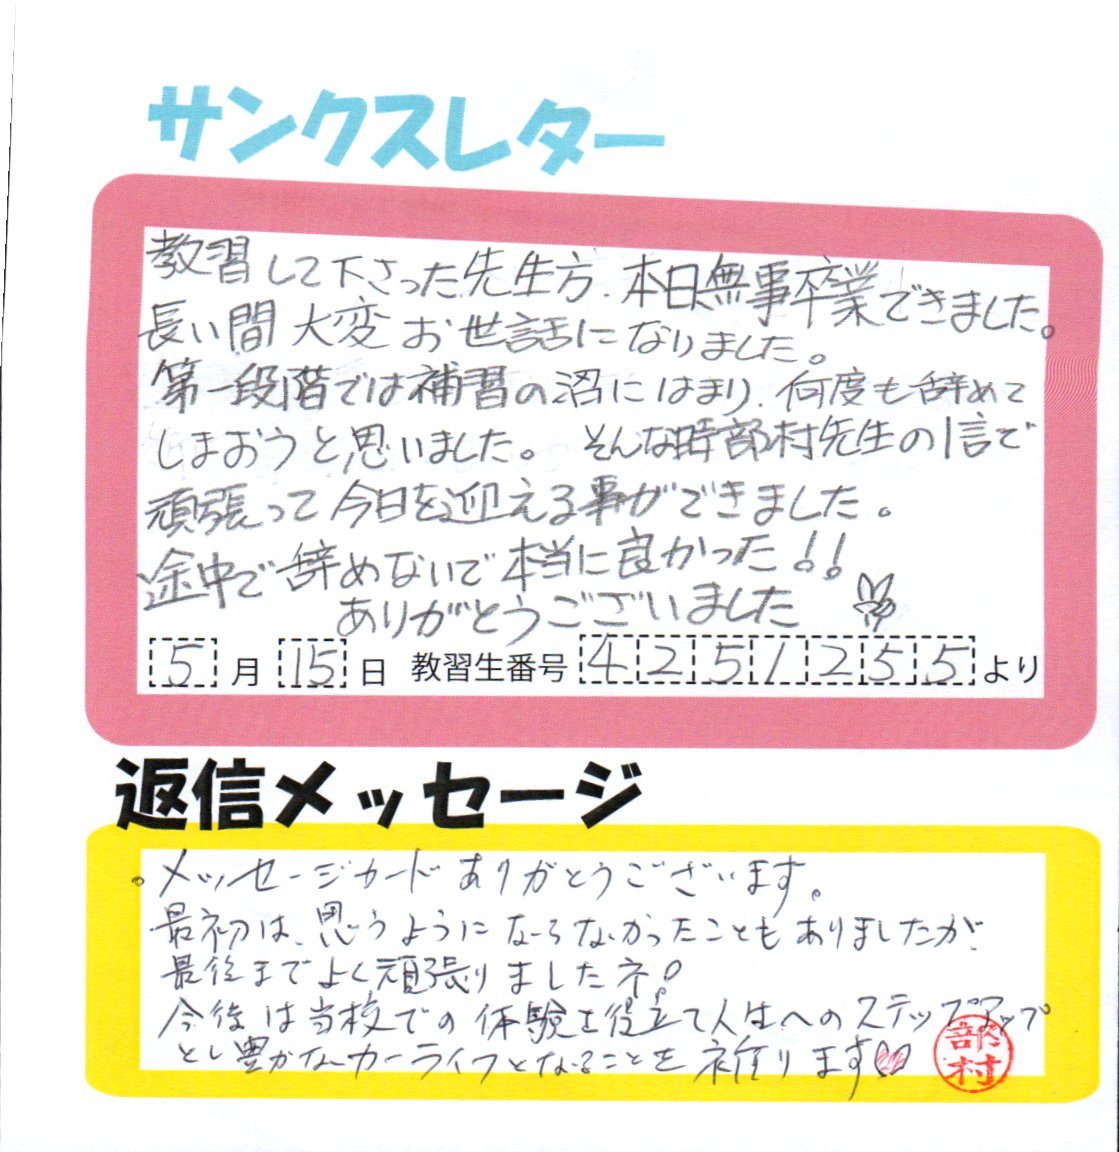 サンクスレター
教習して下さった先生方、本日無事卒業できました。
長い間 大変お世話になりました。
第一段階では補習の沼にはまり、何度も辞めて
しまおうと思いました。そんな時部村先生の1言で
頑張って今日を迎える事ができました。
途中で辞めないで本当に良かった!!
ありがとうございました
5月15日 教習生番号4251255より
返信メッセージ
。メッセージカードありがとうございます。
最初は、思うようにならなかったこともありましたが、
最後までよく頑張りましたネ!
今後は当校での体験を役立て人生へのステップアップ
とし豊かなカーライフとなることを祈ります♡
部村